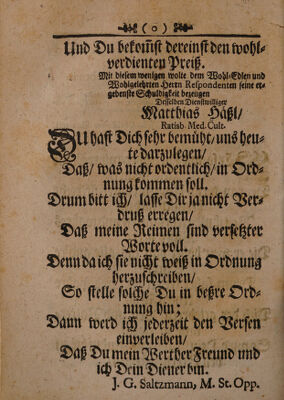 ( o )
Und Du bekom̃st dereinst den wohl-
verdienten Preiß.
Mit diesem wenigen wolte dem Wohl-Edlen und
Wohlgelehrten Herrn Respondenten seine er-
gebenste Schuldigkeit bezeugen
Desselben Dienstwilliger
Matthias Häßl/
Ratisb. Med. Cult.
DU hast Dich sehr bemüht/ uns heu-
te darzulegen/
Daß/ was nicht ordentlich/ in Ord-
nung kommen soll.
Drum bitt ich/ lasse Dir ja nicht Ver-
druß erregen/
Daß meine Reimen sind versetzter
Worte voll.
Denn da ich sie nicht weiß in Ordnung
herzuschreiben/
So stelle solche Du in beßre Ord-
nung hin;
Dann werd ich jederzeit den Versen
einverleiben/
Daß Du mein Werther Freund und
ich Dein Diener bin.
J. G. Saltzmann, M. St. Opp.